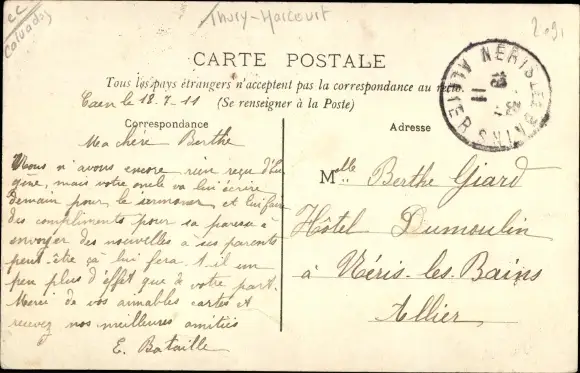 cc
Calvados
Thury-Harcourt
CARTE POSTALE
Tous les pays étrangers n'acceptent pas la correspondance au recto.
(Se renseigner à la Poste)
Caen le 12-7-11
Correspondance
Ma chère Berthe
Nous n'avons encore rien reçu d'Eu
gène, mais votre oncle va lui écrire
demain pour le sermoner et lui faire
des compliments pour sa paresse à
envoyer des nouvelles a ses parents
peut-être ça lui fera-t-il un
peu plus d'effet que de votre part.
Merci de vos aimables cartes et
recevez nos meilleures amitiés
E. Bataille
Adresse
Melle Berthe Giard
Hôtel Dumoulin
à Néris-les-Bains
Allier
NERIS LES BAINS
ALLIER
11